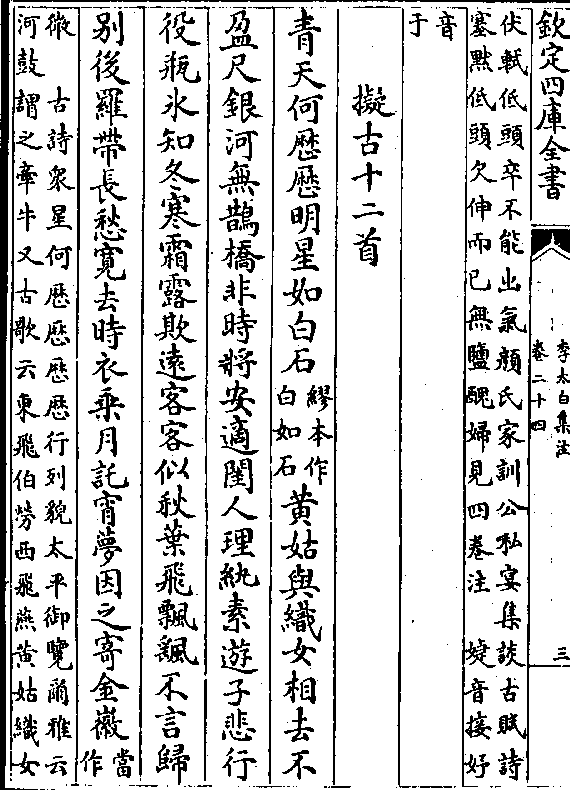 欽定四庫全書
李太白集注
卷二十四
三
伏軾低頭卒不能出氣顔氏家訓公私宴集談古賦詩
塞黙低頭欠伸而已無鹽醜婦見四卷注 婕音接妤
音
于
擬古十二首
青天何歴歴明星如白石繆本作白如石黄姑與織女相去不
盈尺銀河無鵲橋非時將安適閨人理紈素遊子悲行
役瓶氷知冬寒霜露欺遠客客似秋葉飛飄颻不言歸
别後羅帶長愁寛去時衣乗月託宵夢因之寄金徽當作
微 古詩衆星何歴歴歴歴行列貌太平御覽爾雅云
河鼓謂之牽牛又古歌云東飛伯勞西飛燕黄姑織女